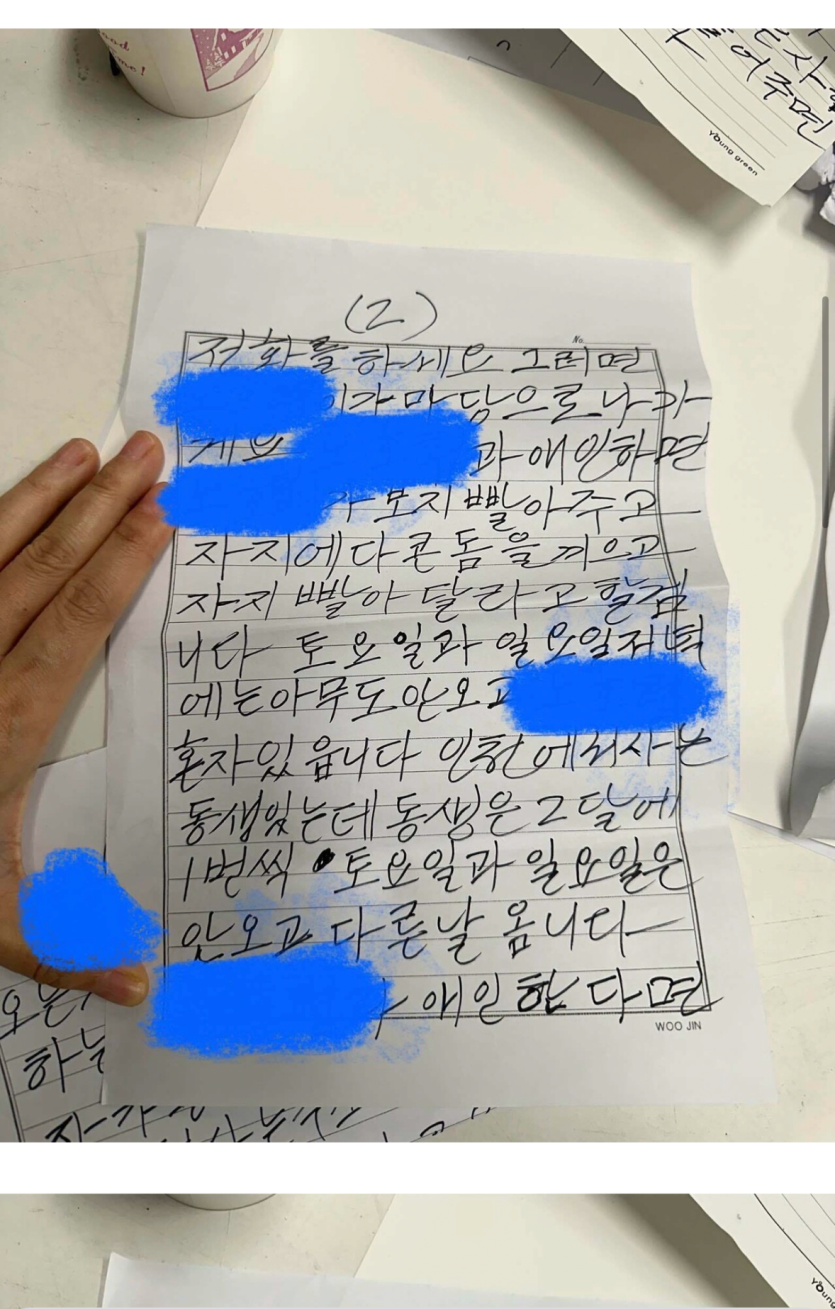 어주면
Young green
(2)
No.
저화를 하세요 그러면
이가 마당으로 나가
게요
과 애인하면
가 보지 빨아주고
자지에다 콘돔을 끼으고
자지 빨아 달라고 할검
니다 토요일과 일요일저녁
에는 아무도 안오고
혼자 있읍니다 인천에서사는
동생있는데 동생은 2달에
1번씩 토요일과 일요일은
안오고 다른날 옴니다
애인 한다면
WOO JIN
하는